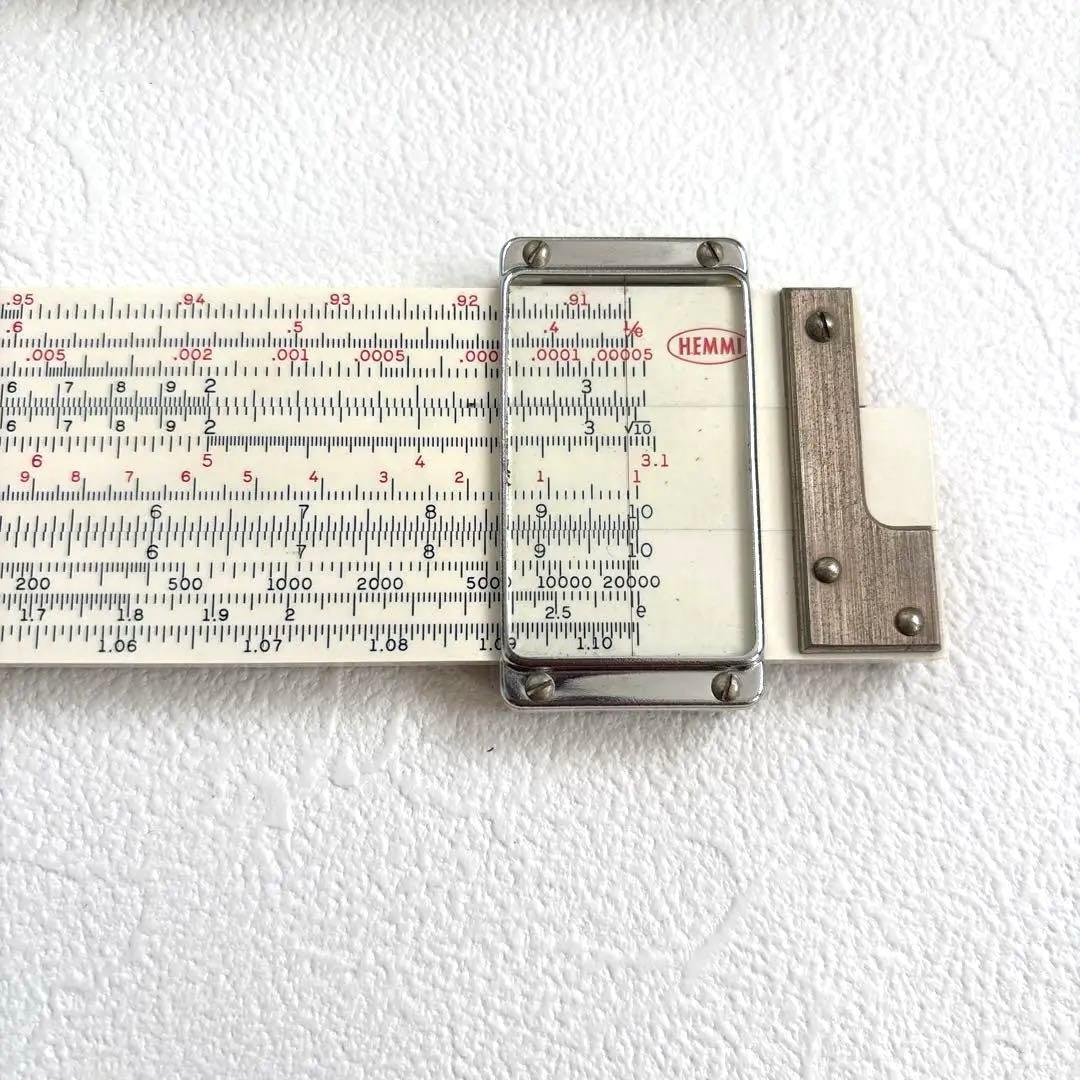 .95 .94 .93 .92 .91
.6 .5 .4 1/e
.005 .002 .001 .0005 .000 .0001 .00005
HEMMI
6 7 8 9 2 3
6 7 8 9 2 3 √10
6 5 4 3.1
9 8 7 6 5 4 3 2 1 1
6 7 8 9 10
6 7 8 9 10
200 500 1000 2000 5000 10000 20000
1.7 1.8 1.9 2 2.5 e
1.06 1.07 1.08 1.09 1.10